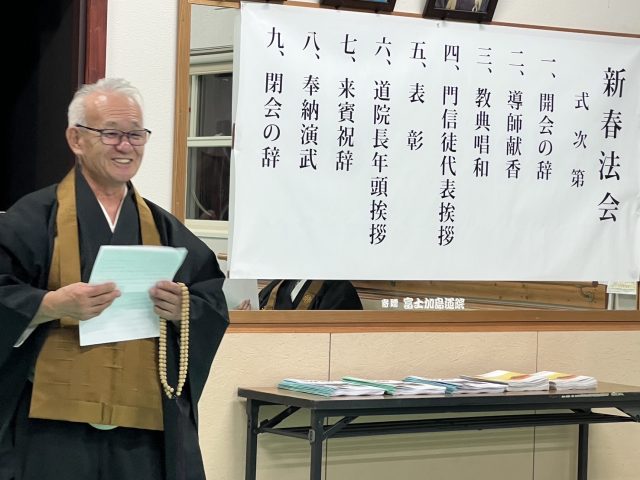 新春法会
式次第
一、開会の辞
二、導師献香
三、教典唱和
四、門信徒代表挨拶
五、表彰
六、道院長年頭挨拶
七、来賓祝辞
八、奉納演武
九、閉会の辞
寄贈 富士加島道院